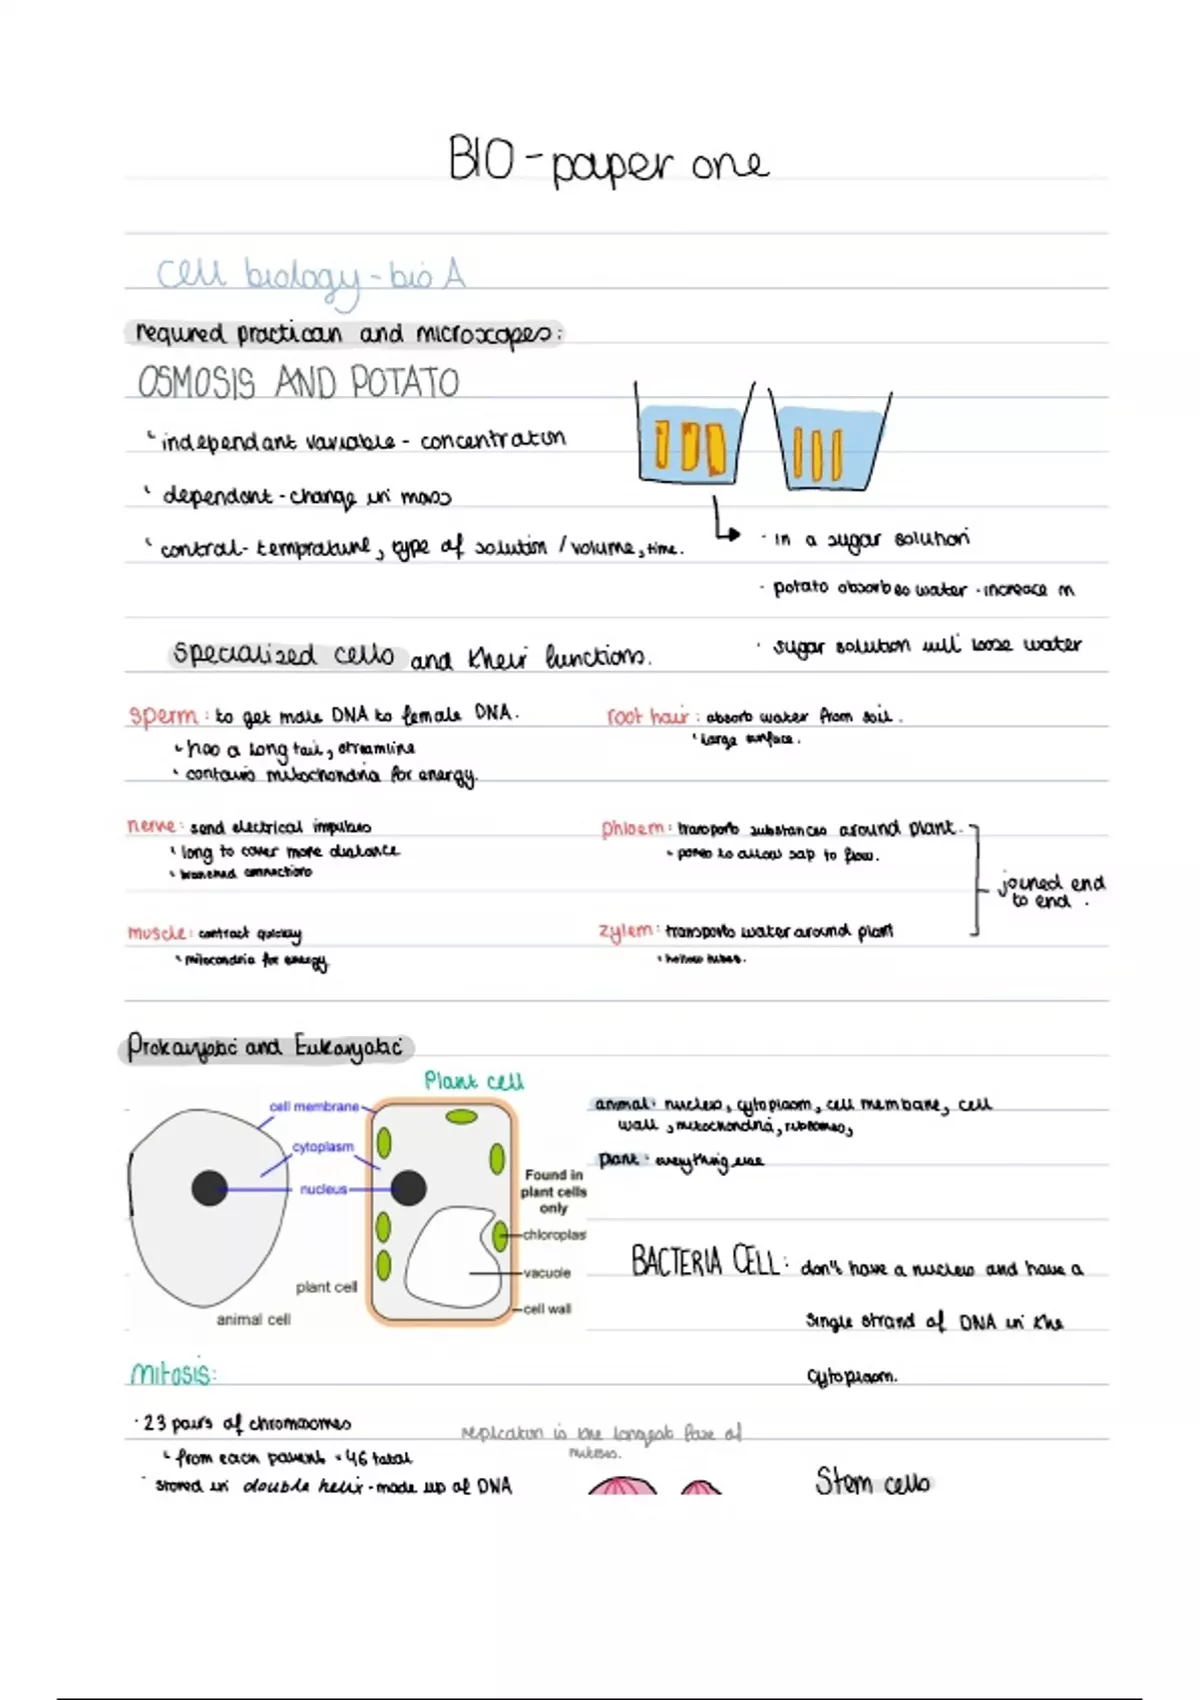 BIO - paper one
cell biology - bio A
required practican and microscopes:
OSMOSIS AND POTATO
independant variable - concentration
dependant - change in mass
control - temprature, type of solution / volume, time.
· in a sugar solution
· potato absorbes water - increace m
· sugar solution will loose water
specialised cells and their functions.
sperm: to get male DNA to female DNA.
has a long tail, streamline
contains mitochondria for energy.
root hair: absorb water from soil.
large surface.
nerve: send electrical impulses
long to cover more distance
branched connections
phloem: transports substances around plant.
pores to allow sap to flow.
joined end
to end.
muscle: contract quickly
mitocondria for energy
zylem: transports water around plant
hollow tubes.
Prokaryotic and Eukaryotic
Plant cell
cell membrane
cytoplasm
nucleus
Found in
plant cells
only
chloroplas
vacuole
cell wall
plant cell
animal cell
animal: nucleus, cytoplasm, cell membane, cell
wall, mitochondria,
plant: everything else
BACTERIA CELL: don't have a nucleus and have a
single strand of DNA in the
cytoplasm.
mitosis:
· 23 pairs of chromosomes
from each parent = 46 total
stored in double helix - made up of DNA
replication is the longest of
Stem cells